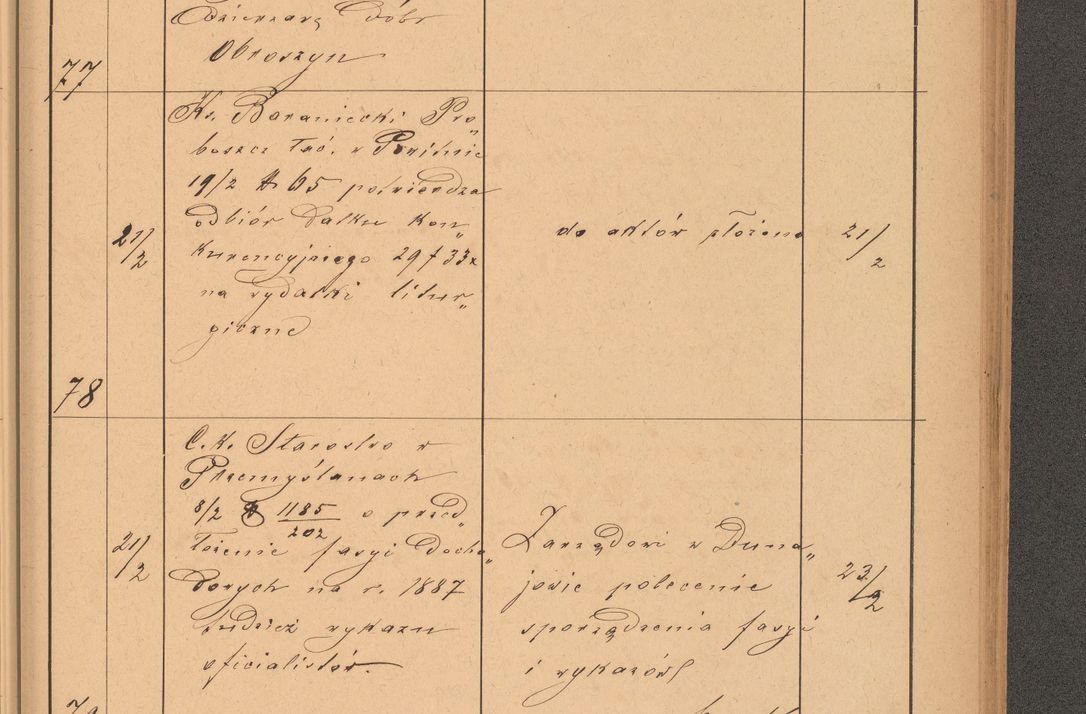 Dzierżawa Dóbr
Obroszyn
77
Ks. Baraniecki Pro„
boszcz łać. w
19/2 N 65 potwierdza
odbiór datku kon„
kurencyjnego 29 f 33 x
na wydatki litur„
giczne
21/2
do aktów złożono
21/2
78
C. K. Starostwo w
Przemyślanach
8/2 N 1185/202 o przed„
łożenie fasyi docho„
dowych na r. 1887
tudzież wykazu
oficialistów.
21/2
Zarządowi w Duna„
jowie polecenie
sporządzenia fasyi
i wykazów
23/2